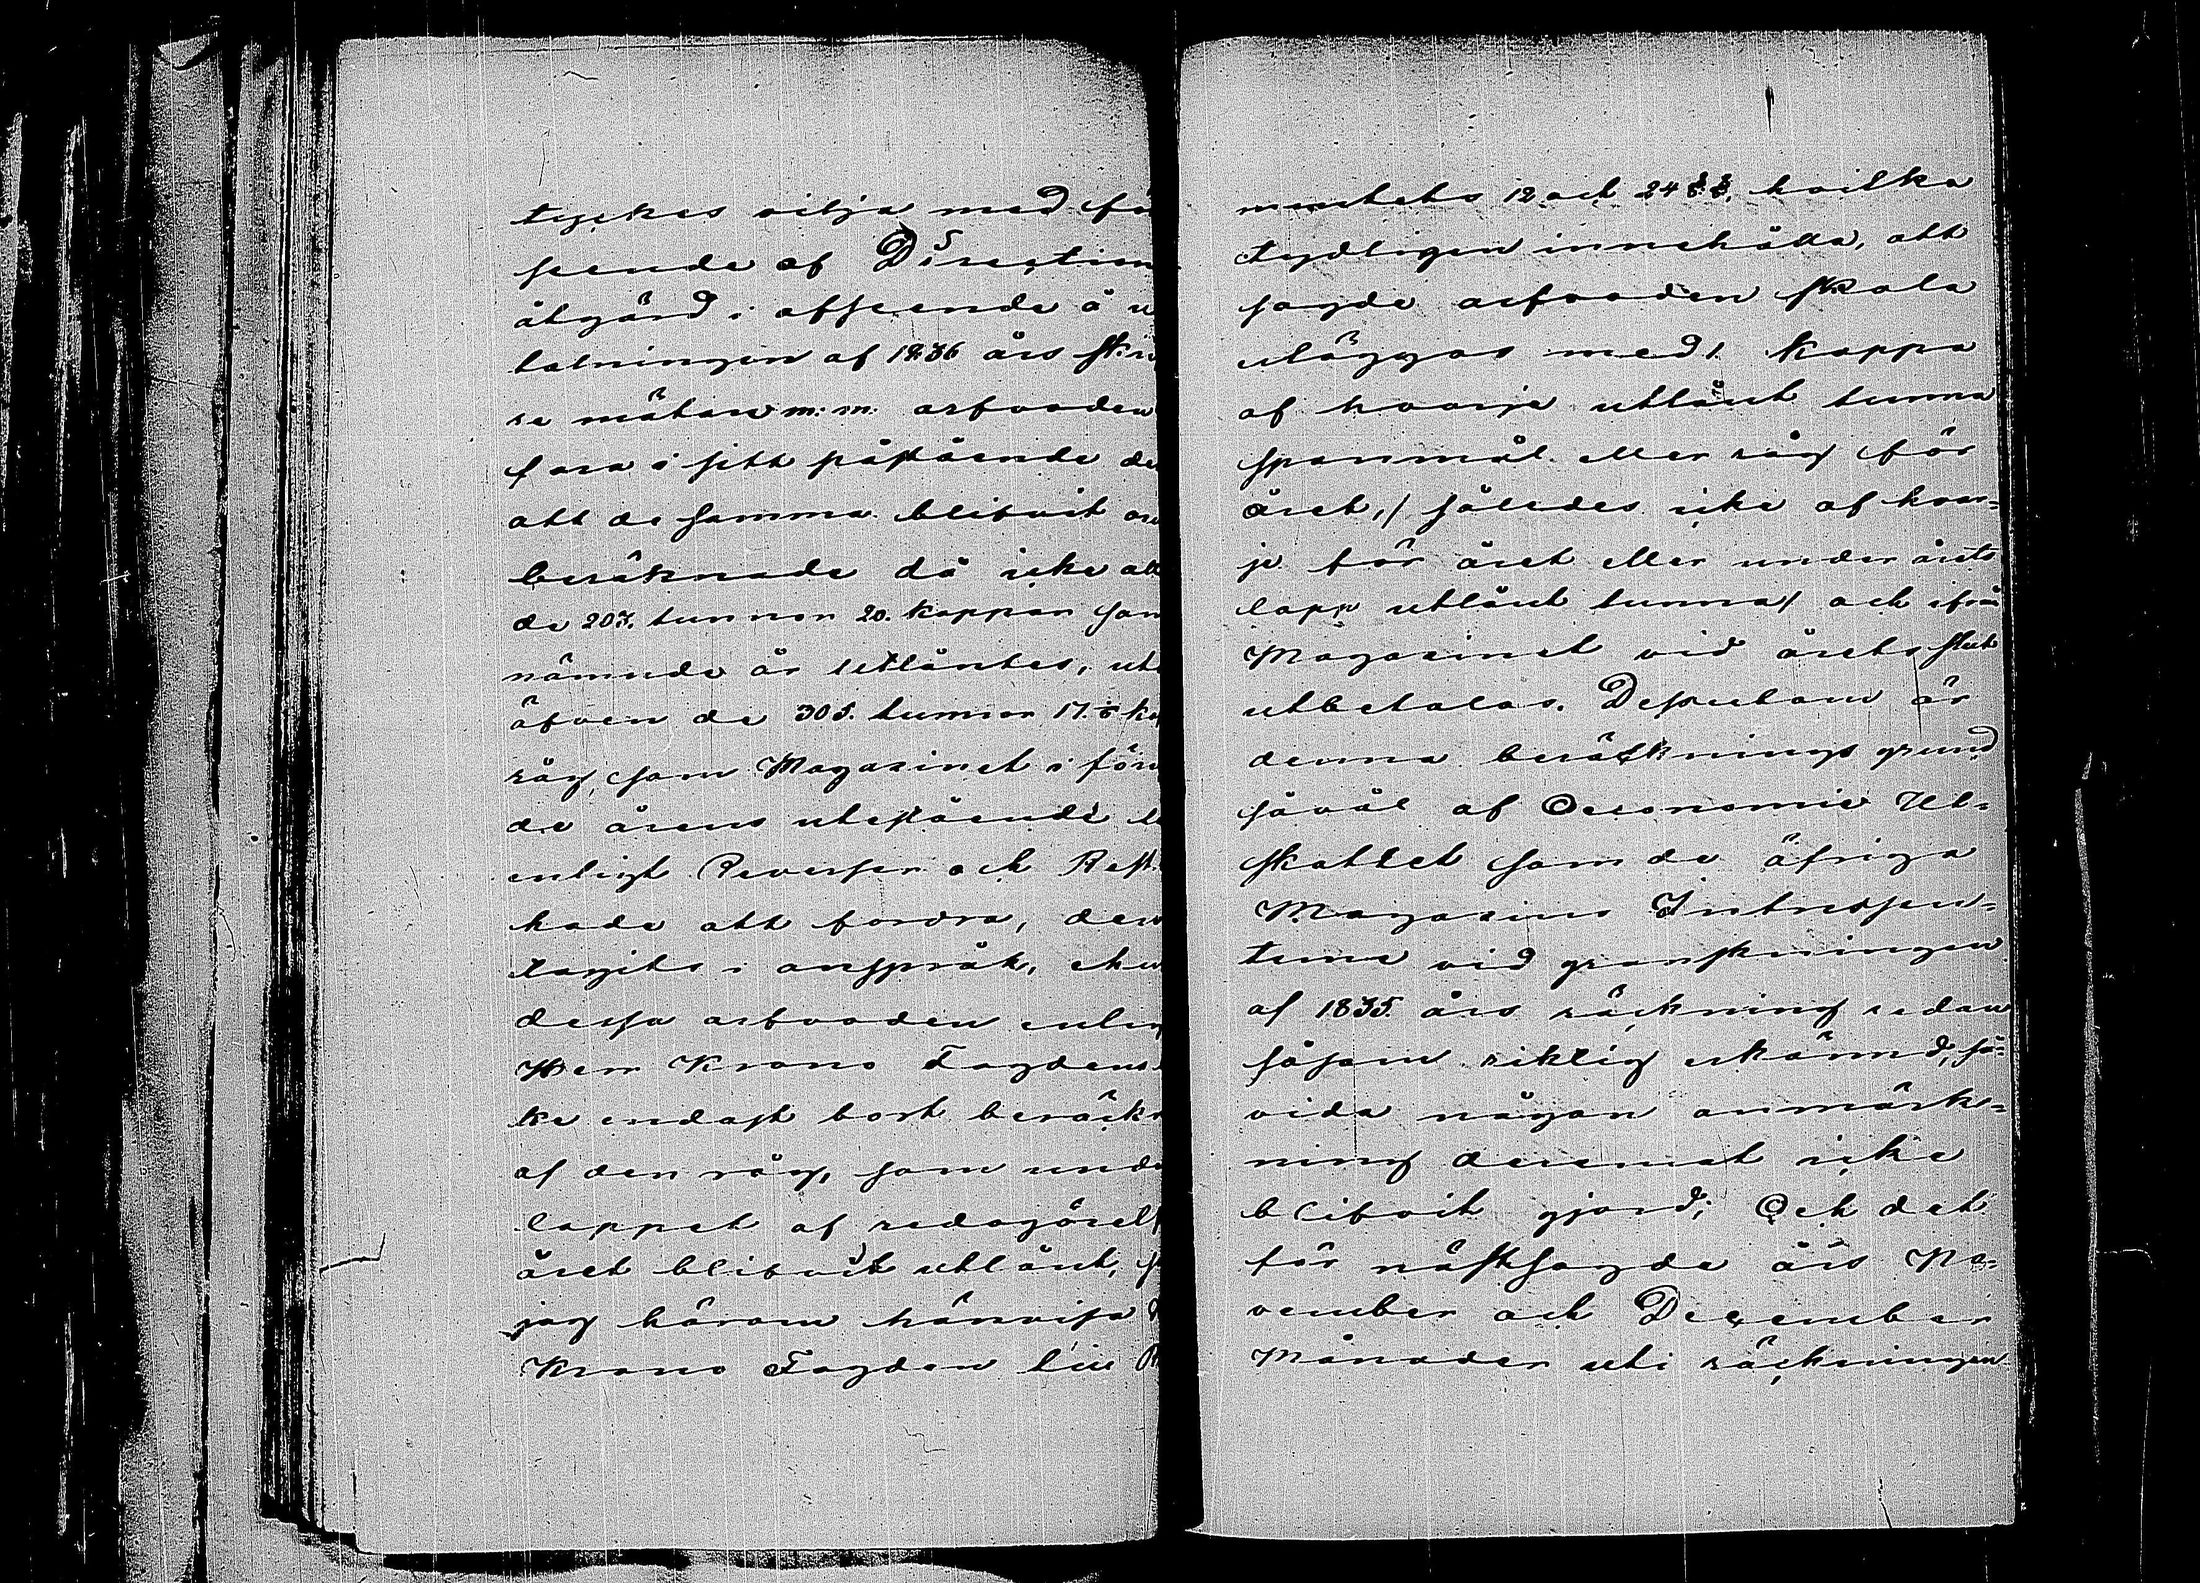 tyckes vilja med för
seende af Directions
åtgärd i afseende å u
talningen af 1836 års skri
re mätare m.m. arfvoden
fara i sitt påstående de
att de samma blifvit or
beräknade då icke all
de 207. tunnor 20. kappar som
nämnde år utlåntes, ut
äfven de 305. tunnor 17. ka
råg, som Magasinet i före
de årens utestående l
enligt Reverser och Rest
hade att fordra, den
tagits i anspråk, ehu
dessa arfvoden enlig
Herr Krono Fogdens
ke endast bort beräckn
af den råg, som unde
loppet af redogörels
året blifvit utlånt, s
jag härom hänvisa
Krono Fogden till R
mentets 12 och 24 §§, hvilka
tydligen innehålla, att
sagde arfvoden skola
utläggas med 1 kappa
af hvarje utlånt tunna
spanmål eller råg för
året, / således icke af hvar-
je för året eller under årets
lopp utlånt tunna / och ifrån
Magasinet vid årets slut
utbetalas. Dessutom är
denna beräkningsgrund
såväl af Oeconomie Ut-
skottet som de öfriga
Magasins Intressen-
terne vid granskningen
af 1835 års räckning redan
såsom riktig erkännd, så-
vida någon anmärk-
ning deremot icke
blifvit gjord; Och det
för nästsagde års No-
vember och December
Månader uti räckningen